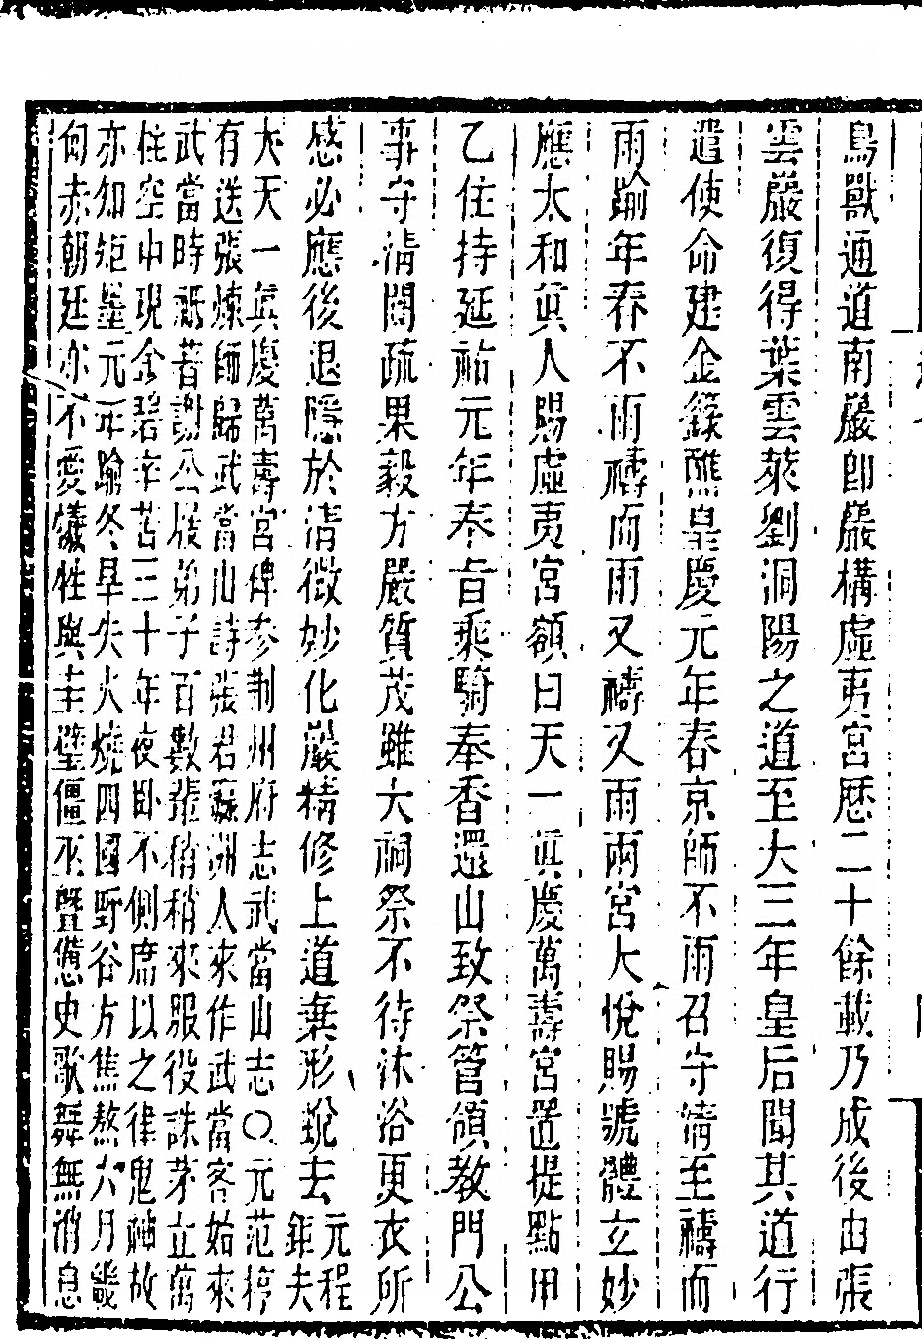 鳥獸通道南巖即巖構虛夷宮歷二十餘載乃成後由張
雲巖復得葉雲萊劉洞陽之道至大三年皇后聞其道行
遣使命建金籙醮皇慶元年春京師不雨召守清至禱而
雨踰年春不雨禱而雨又禱又雨兩宮大悅賜號體玄妙
應太和眞人賜虛夷宮額曰天一眞慶萬壽宮置提點甲
乙住持延祐元年奉旨乘驛奉香還山致祭管領教門公
事守淸闊疏果毅方嚴質茂雖大祠祭不待沐浴更衣所
感必應後退隱於清微妙化巖精修上道棄形蛻去元程
鉅夫
大天一眞慶萬壽宮碑參荆州府志武當山志〇元范梈
有送張煉師歸武當山詩張君蘇州人來作武當客始來
武當時祇著謝公屐弟子百數輩稍稍來服役誅茅立萬
柱空中現金碧辛苦三十年夜卧不側席以之律鬼神故
亦知矩墨元年踰冬旱失火燒四國野谷方焦熬六月幾
旬赤朝廷亦不愛犧牲與圭璧僵巫曁憊史歌舞無消息